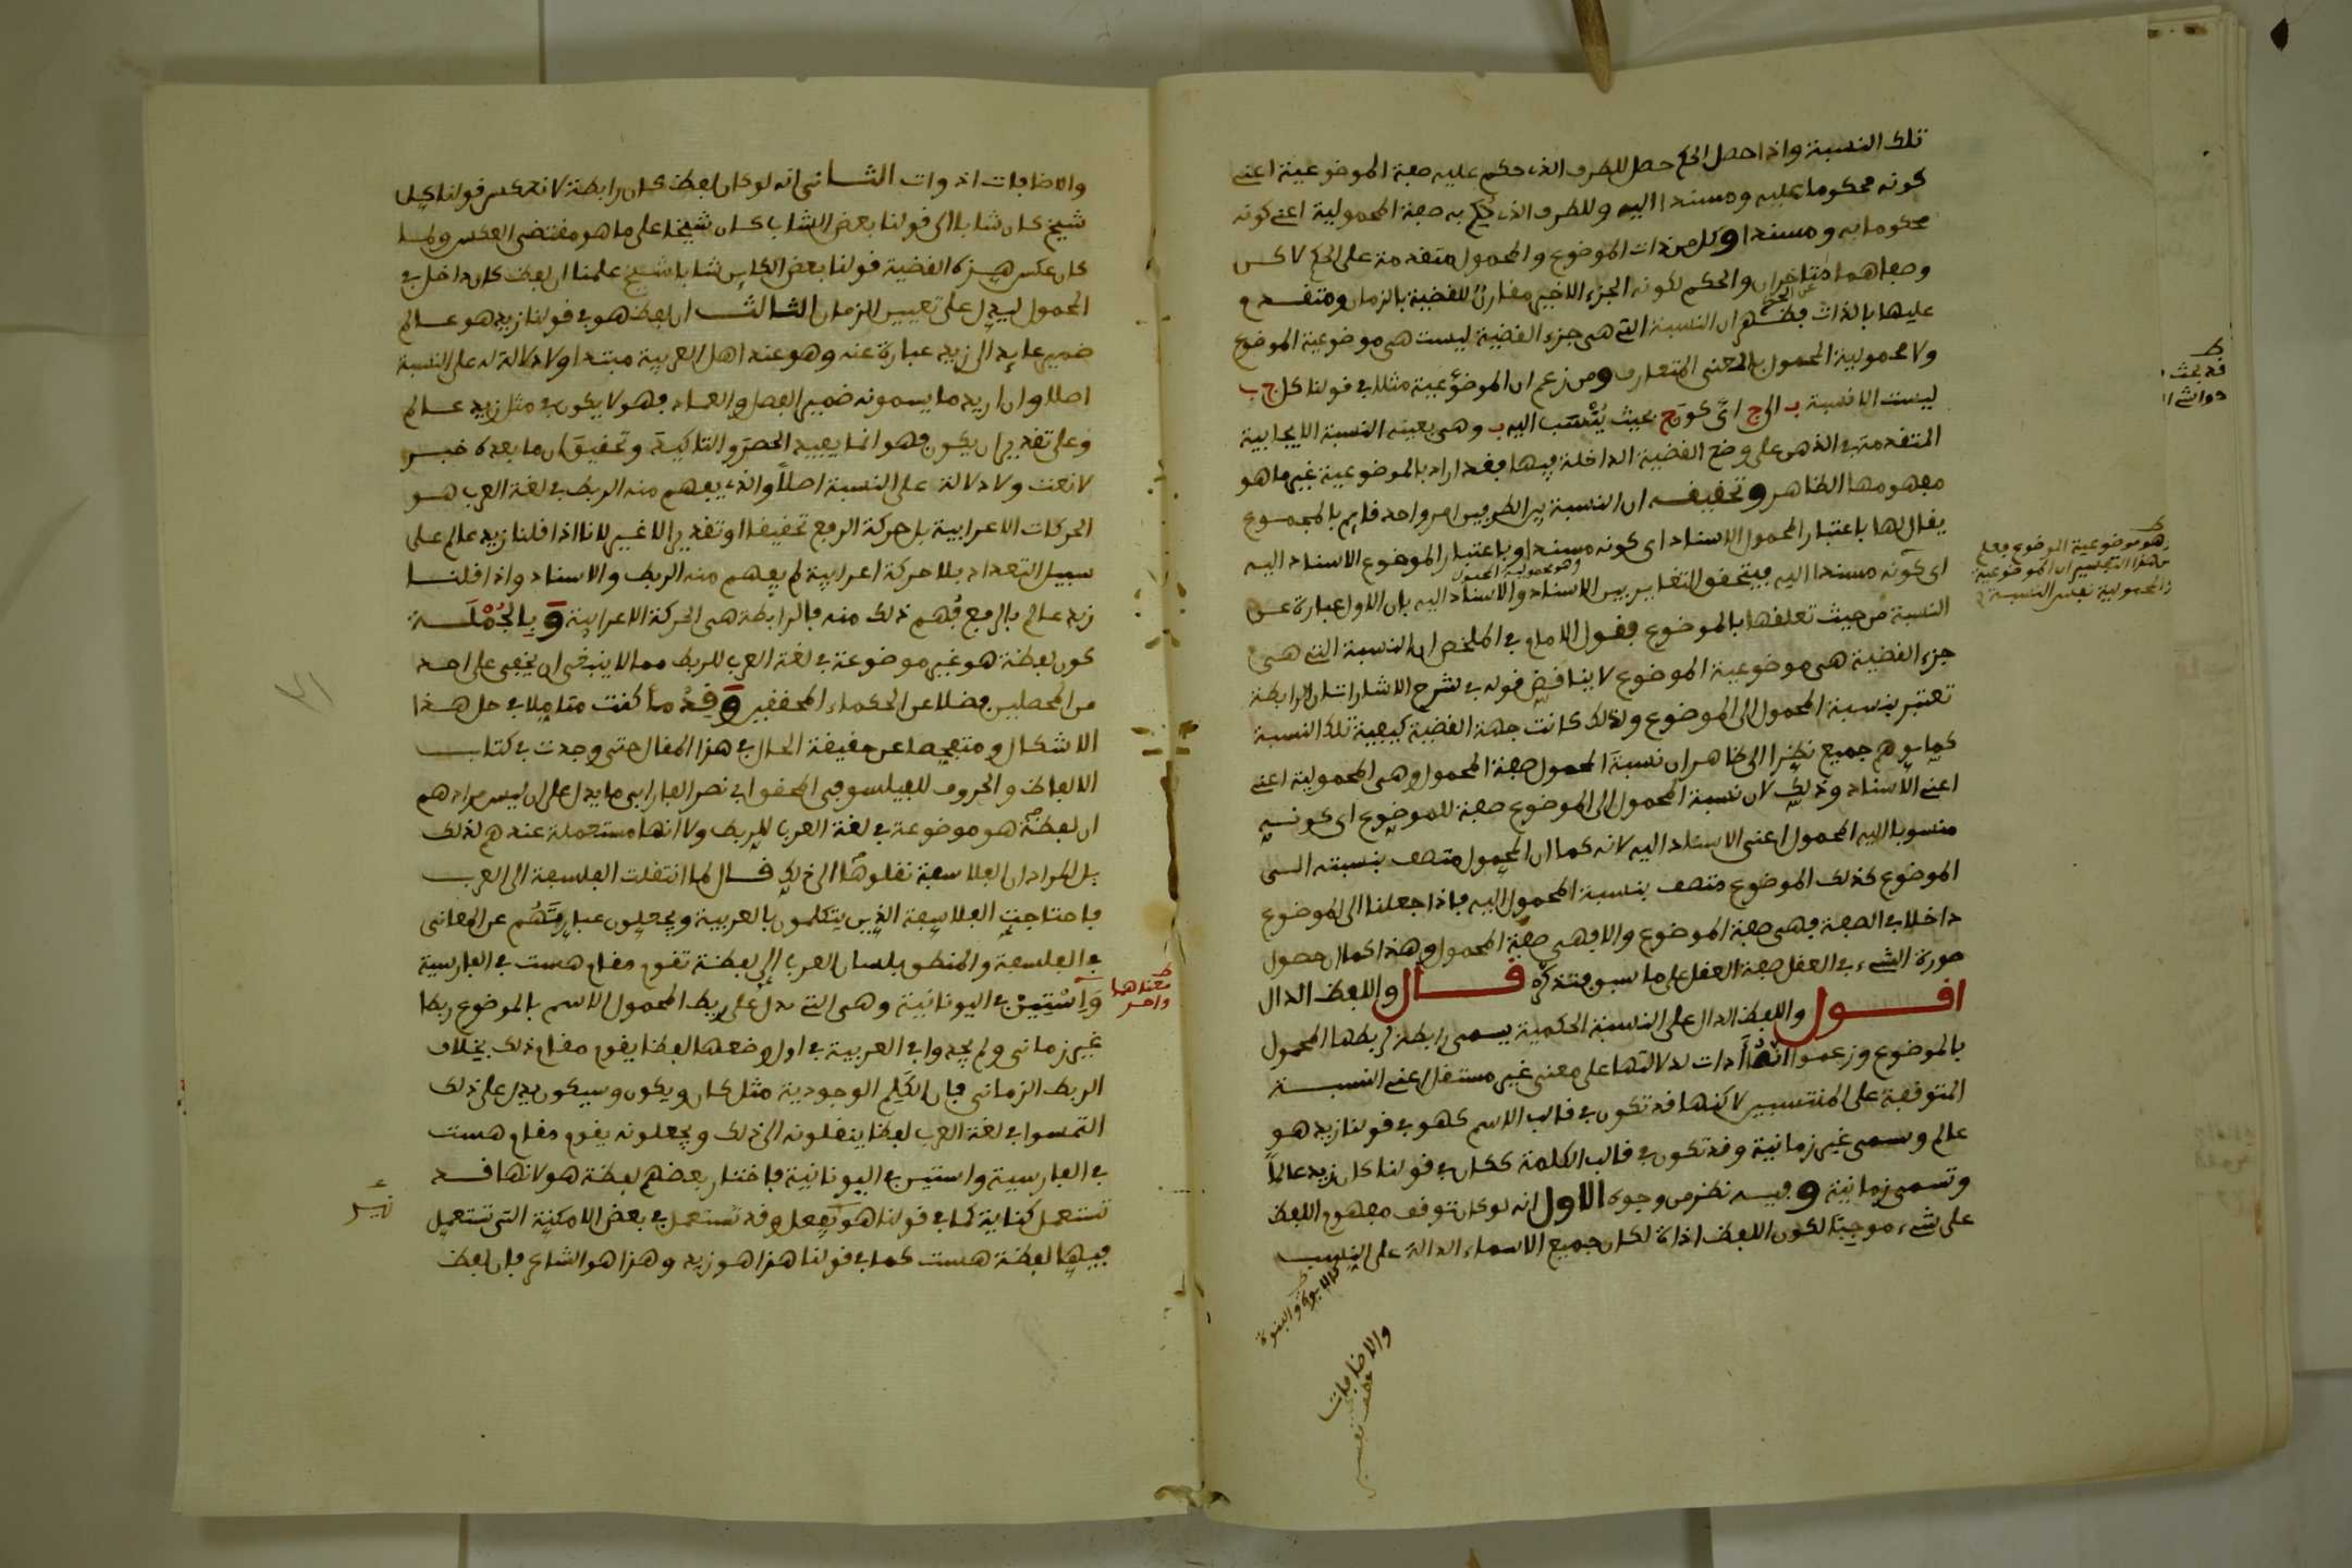 تلك النسبة واذا حصل الحكم حصل للطرف الذى حكم عليه صفة الموضوعية اعنى
كونه محكوما عليه ومسندا اليه وللطرف الذى حُكِم به صفة المحمولية اعنى كونه
محكوما به ومسندا وكل من ذات الموضوع والمحمول متقدمة على الحكم لاكن
وصفاهما متاخران عن الحكم والحكم لكونه الجزء الاخير مقارنٌ للقضية بالزمان ومتقدم
عليها بالذات فظهر ان النسبة التى هى جزء القضية ليست هى موضوعية الموضوع
ولا محمولية المحمول بالمعنى المتعارف ومن زعم ان الموضوعية مثلا فى قولنا كل ج ب
ليست الا نسبة ب الى ج اى كون ج بحيث يُنْسَب اليه ب وهى بعينه النسبة الايجابية
المتقدمة فى الذهن على وضع القضية الداخلة فيها فقد اراد بالموضوعية غير ما هو
مفهومها الظاهر وتحقيقه ان النسبة بين الطرفين امر واحد قايم بالمجموع
يقال لها باعتبار المحمول الاسناد اى كونه مسندا وباعتبار الموضوع الاسناد اليه
وهو محمولية المحمول
اى كونه مسندا اليه فيتحقق التغاير بين الاسناد والاسناد اليه بان الاول عبارة عن
النسبة من حيث تعلقها بالموضوع فقول الامام فى الملخص ان النسبة التى هى
جزء القضية هى موضوعية الموضوع لا يناقض قوله فى شرح الاشارات ان الرابطة
تعتبر بنسبة المحمول الى الموضوع ولذلك كانت جهة القضية كيفية تلك النسبة
كما يوهم جميع نظرا الى ظاهر ان نسبة المحمول صفة المحمول وهى المحمولية اعنى
اعنى الاسناد وذلك لان نسبة المحمول الى الموضوع صفة للموضوع اى كونه
منسوبا اليه المحمول اعنى الاسناد اليه لانه كما ان المحمول متصف بنسبته الى
الموضوع كذلك الموضوع متصف بنسبة المحمول اليه فاذا جعلنا الى الموضوع
داخلا فى الصفة فهى صفة الموضوع والا فهى صفة المحمول وهذا كما ان حصول
صورة الشىء فى العقل صفة العقل على ما سبق فتذكره قال واللفظ الدال
اقول واللفظ الدال على النسبة الحكمية يسمى رابطة لربطها المحمول
بالموضوع وزعموا انها أدات لدلالتها على معنى غير مستقل اعنى النسبة
المتوقفة على المنتسبين لاكنها قد تكون فى قالب الاسم كهو فى قولنا زيد هو
عالم وسمى غير زمانية وقد تكون فى قالب الكلمة ككان فى قولنا كان زيد عالماً
وتسمى زمانية وفيه نظر من وجوه الاول انه لو كان توقف مفهوم اللفظ
على شىء موجبًا لكون اللفظ اداة لكان جميع الاسماء الدالة على النسب
كالابوة والبنوة
والاضافات
ط
قد بحث
ط
وهو موضوعية الموضوع فعلم
من هذا التفسير ان الموضوعية
والمحمولية نفس النسبة
والاضافات ادوات الثانى انه لو كان لفظ كان رابطة لانعكس قولنا كل
شيخ كان شابا الى قولنا بعض الشاب كان شيخا على ما هو مقتضى العكس ولما
كان عكس هذه القضية قولنا بعض الكاين شابا شيخ علمنا ان لفظ كان داخل فى
المحمول ليدل على تعيين الزمان الثالث ان لفظ هو فى قولنا زيد هو عالم
ضمير عايد الى زيد عبارة عنه وهو عند اهل العربية مبتدا ولا دلالة له على النسبة
اصلا وان اريد ما يسمونه ضمير الفصل والعماد فهو لا يكون فى مثل زيد عالم
وعلى تقدير ان يكون فهو انما يفيد الحصر والتاكيد وتحقيق ان ما بعده خبر
لا نعت ولا دلالة على النسبة اصلاً والذى يفهم منه الربط فى لغة العرب هو
الحركات الاعرابية بل حركة الرفع تحقيقا او تقديرا لا غير لانا اذا قلنا زيد عالم على
سبيل التعداد بلا حركة اعرابية لم يفهم منه الربط والاسناد واذا قلنا
زيد عالم بالرفع فُهم ذلك منه فالرابطة هى الحركة الاعرابية وَبِالجُمْلَة
كون لفظة هو غير موضوعة فى لغة العرب للربط مما لا ينبغى ان يخفى على احد
من المحصلين فضلا عن الحكماء المحققين وَقِدْمًا كنت متاملا فى حل هذا
الاشكال ومتفحصا عن حقيقة الحال فى هذا المقال حتى وجدت فى كتاب
الالفاظ والحروف للفيلسوف المحقق ابى نصر الفارابى ما يدل على ان ليس مرادهم
ان لفظة هو موضوعة فى لغة العرب للربط ولا انها مستعملة عندهم لذلك
بل المراد ان الفلاسفة نقلوها الى ذلك قال لما انتقلت الفلسفة الى العرب
فاحتاجت الفلاسفة الذين يتكلمون بالعربية ويجعلون عبارتَهُم عن المعانى
فى الفلسفة والمنطق بلسان العرب الى لفظة تقوم مقام هست فى الفارسية
وَاسْتِينْ فى اليونانية وهى التى تدل على ربط المحمول الاسم بالموضوع ربطا
غير زمانى ولم يجدوا فى العربية فى اول وضعها لفظا يقوم مقام ذلك بخلاف
الربط الزمانى فان الكَلِم الوجودية مثل كان ويكون وسيكون يدل على ذلك
التمسوا فى لغة العرب لفظا ينقلونه الى ذلك ويجعلونه يقوم مقام هست
فى الفارسية واستين فى اليونانية فاختار بعضهم لفظة هو لانها قد
تستعمل كناية كما فى قولنا هو يفعل وقد تستعمل فى بعض الامكنة التى تستعمل
فيها لفظة هست كما فى قولنا هذا هو زيد وهذا هو الشاعر فان لفظ
ط
معناهما
واحد